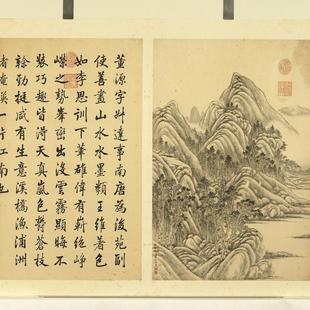 董源字叔達事南唐為後苑副
使善畫山水水墨類王維著色
如李思訓下筆雄偉有嶄絕崢
嶸之勢峯巒出沒雲霧顯晦不
裝巧趣皆得天真嵐色鬱蒼枝
榦勁挺咸有生意溪橋漁浦洲
渚掩映一片江南也